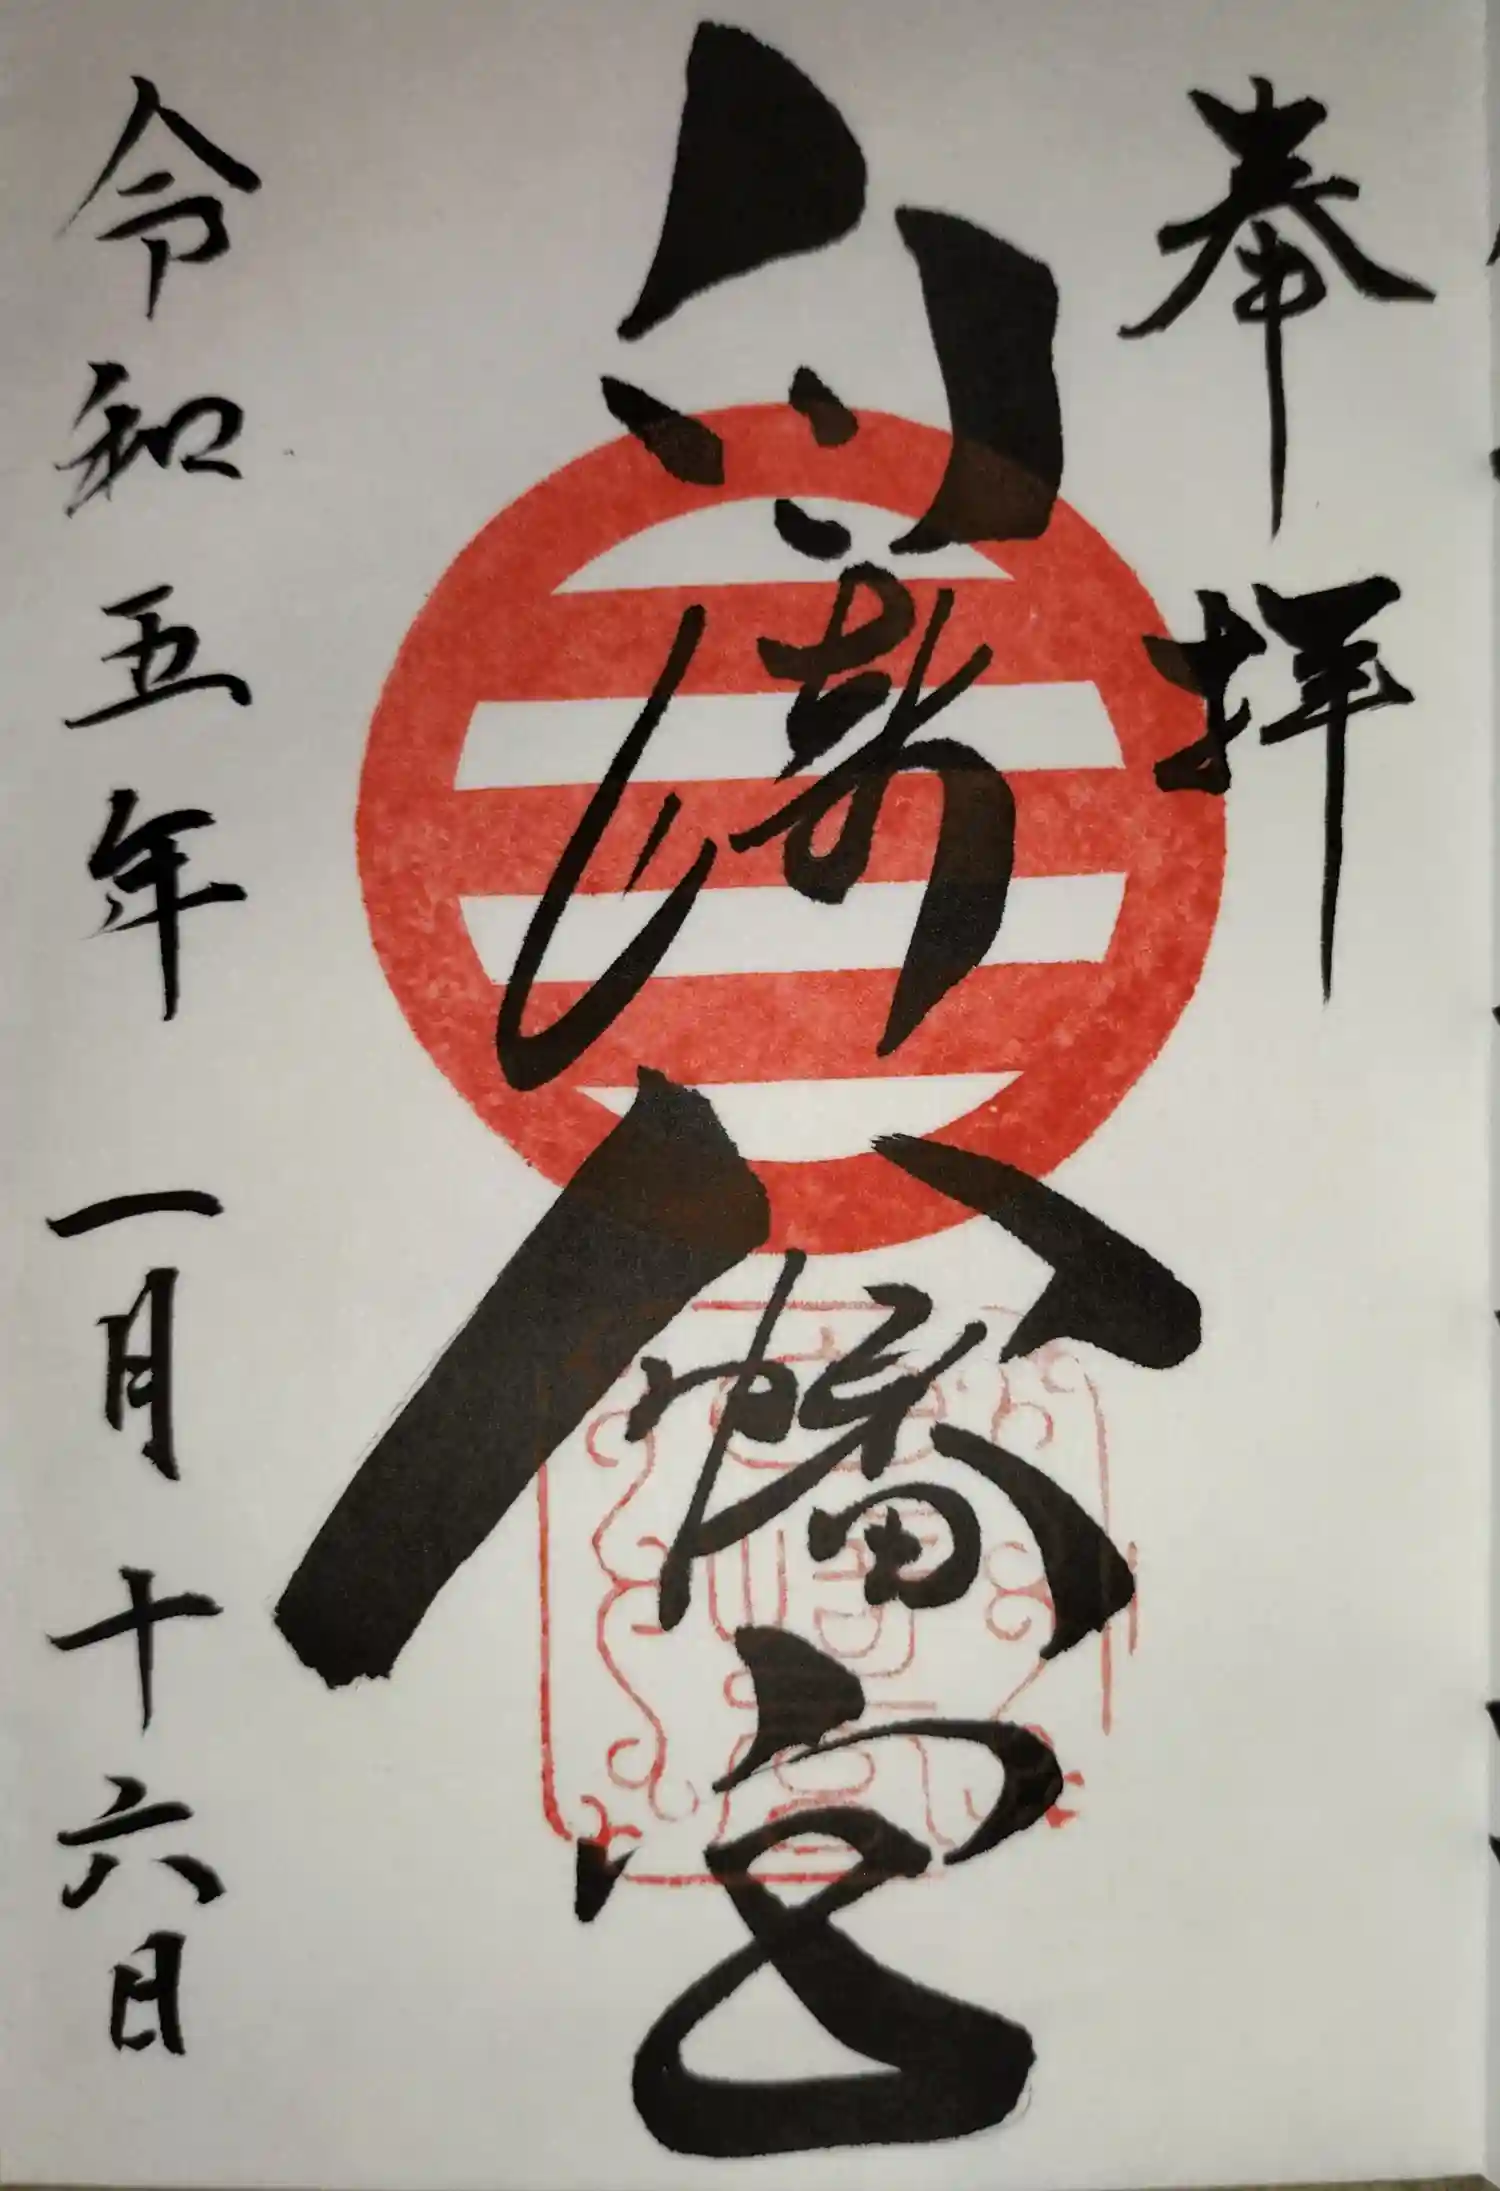 奉拝
八幡宮
令和五年一月十六日